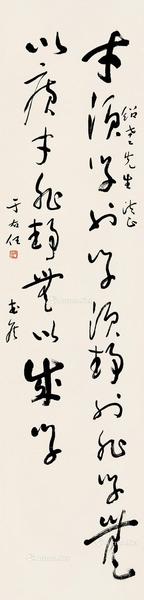 才须学也学须静也非学无
以广才非静无以成学
绍老先生法正
于右任